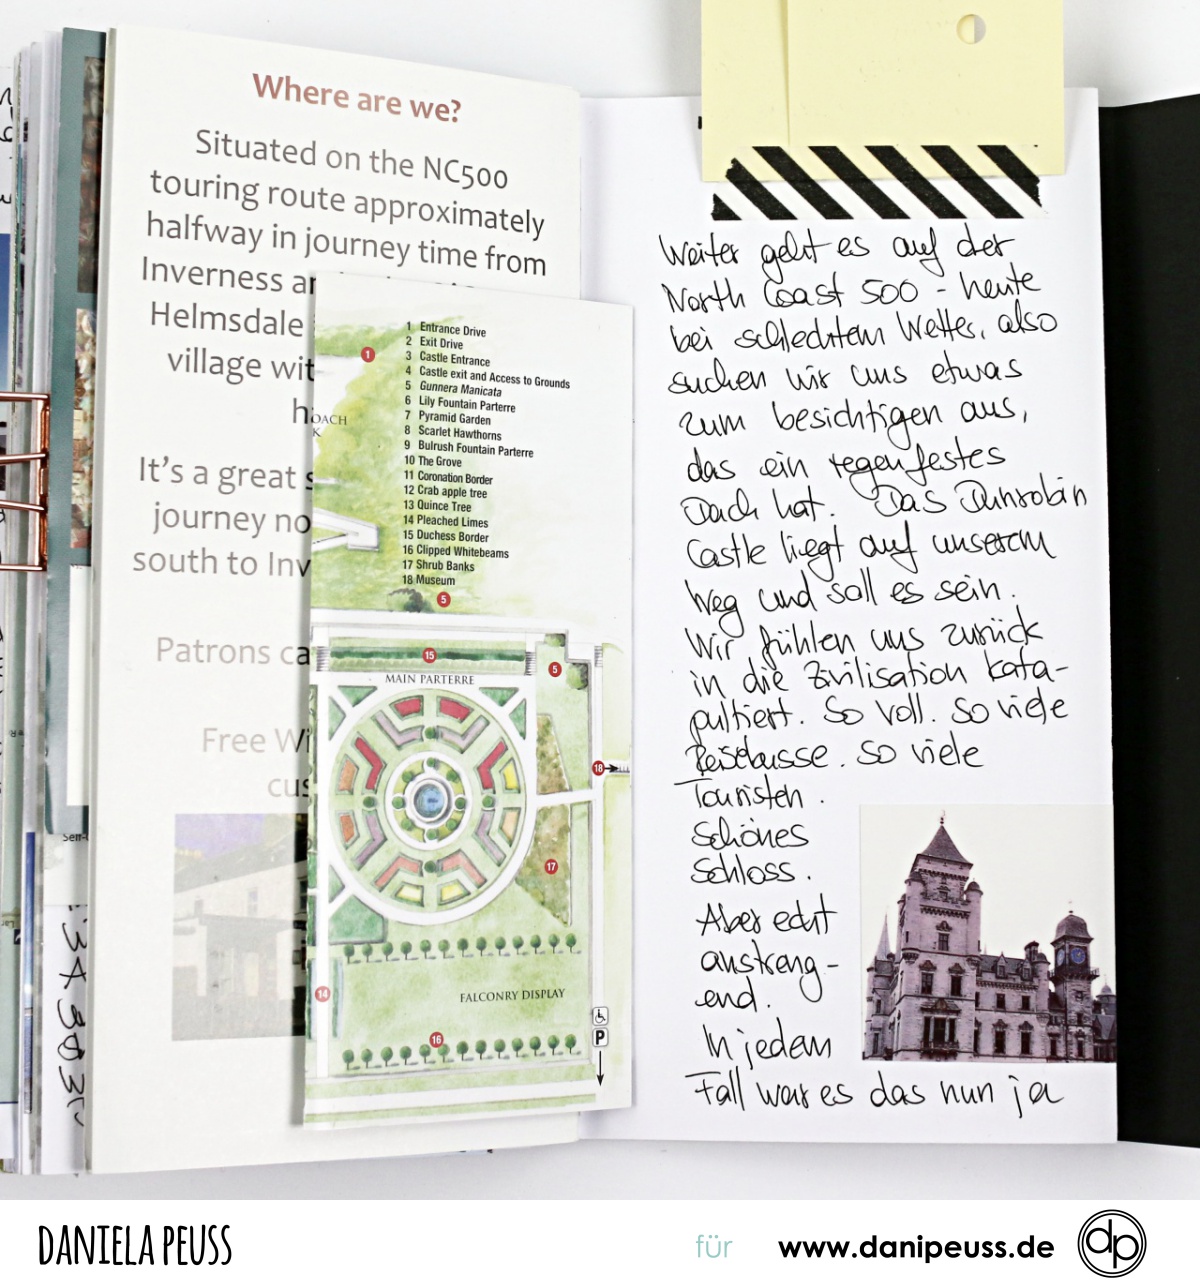 Where are we?
Situated on the NC500
touring route approximately
halfway in journey time from
Inverness
Helmsdale
village wit
h
It's a great s
journey no
south to Inv
Patrons ca
Free Wi
cus
1 Entrance Drive
2 Exit Drive
3 Castle Entrance
4 Castle exit and Access to Grounds
5 Gunnera Manicata
6 Lily Fountain Parterre
7 Pyramid Garden
8 Scarlet Hawthorns
9 Bulrush Fountain Parterre
10 The Grove
11 Coronation Border
12 Crab apple tree
13 Quince Tree
14 Pleached Limes
15 Duchess Border
16 Clipped Whitebeams
17 Shrub Banks
18 Museum
1
OACH
K
5
15
MAIN PARTERRE
5
18
17
14
FALCONRY DISPLAY
16
P
Weiter geht es auf der
North Coast 500 - heute
bei schlechtem Wetter, also
suchen wir uns etwas
zum besichtigen aus,
das ein regenfestes
Dach hat. Das Dunrobin
Castle liegt auf unserem
Weg und soll es sein.
Wir fühlen uns zurück
in die Zivilisation kata-
pultiert. So voll. So viele
Reisebusse. So viele
Touristen.
Schönes
Schloss.
Aber echt
anstreng-
end.
In jedem
Fall war es das nun ja
DANIELA PEUSS
für www.danipeuss.de
dp